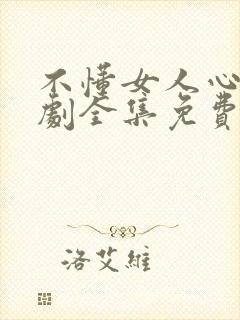 不懂女人心
劇全集免費
洛艾維